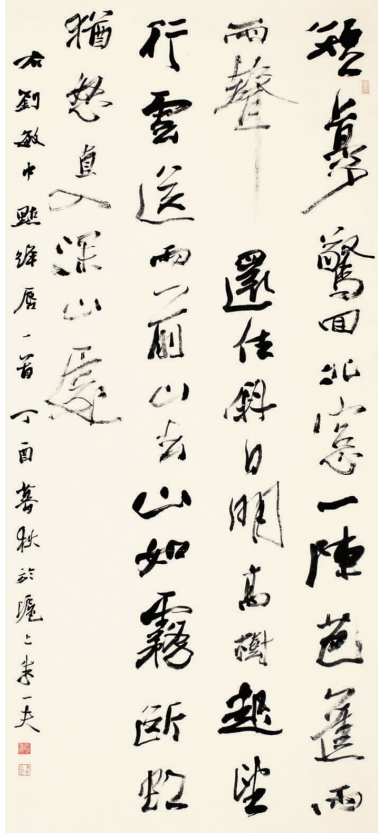 短夢驚回北窓一陣芭蕉雨
雨聲還住斜日明高樹起望
行雲送雨前山去山如霧斷虹
猶怒直入深山處
右劉敏中點絳唇一首丁酉暮秋於滬上朱一夫